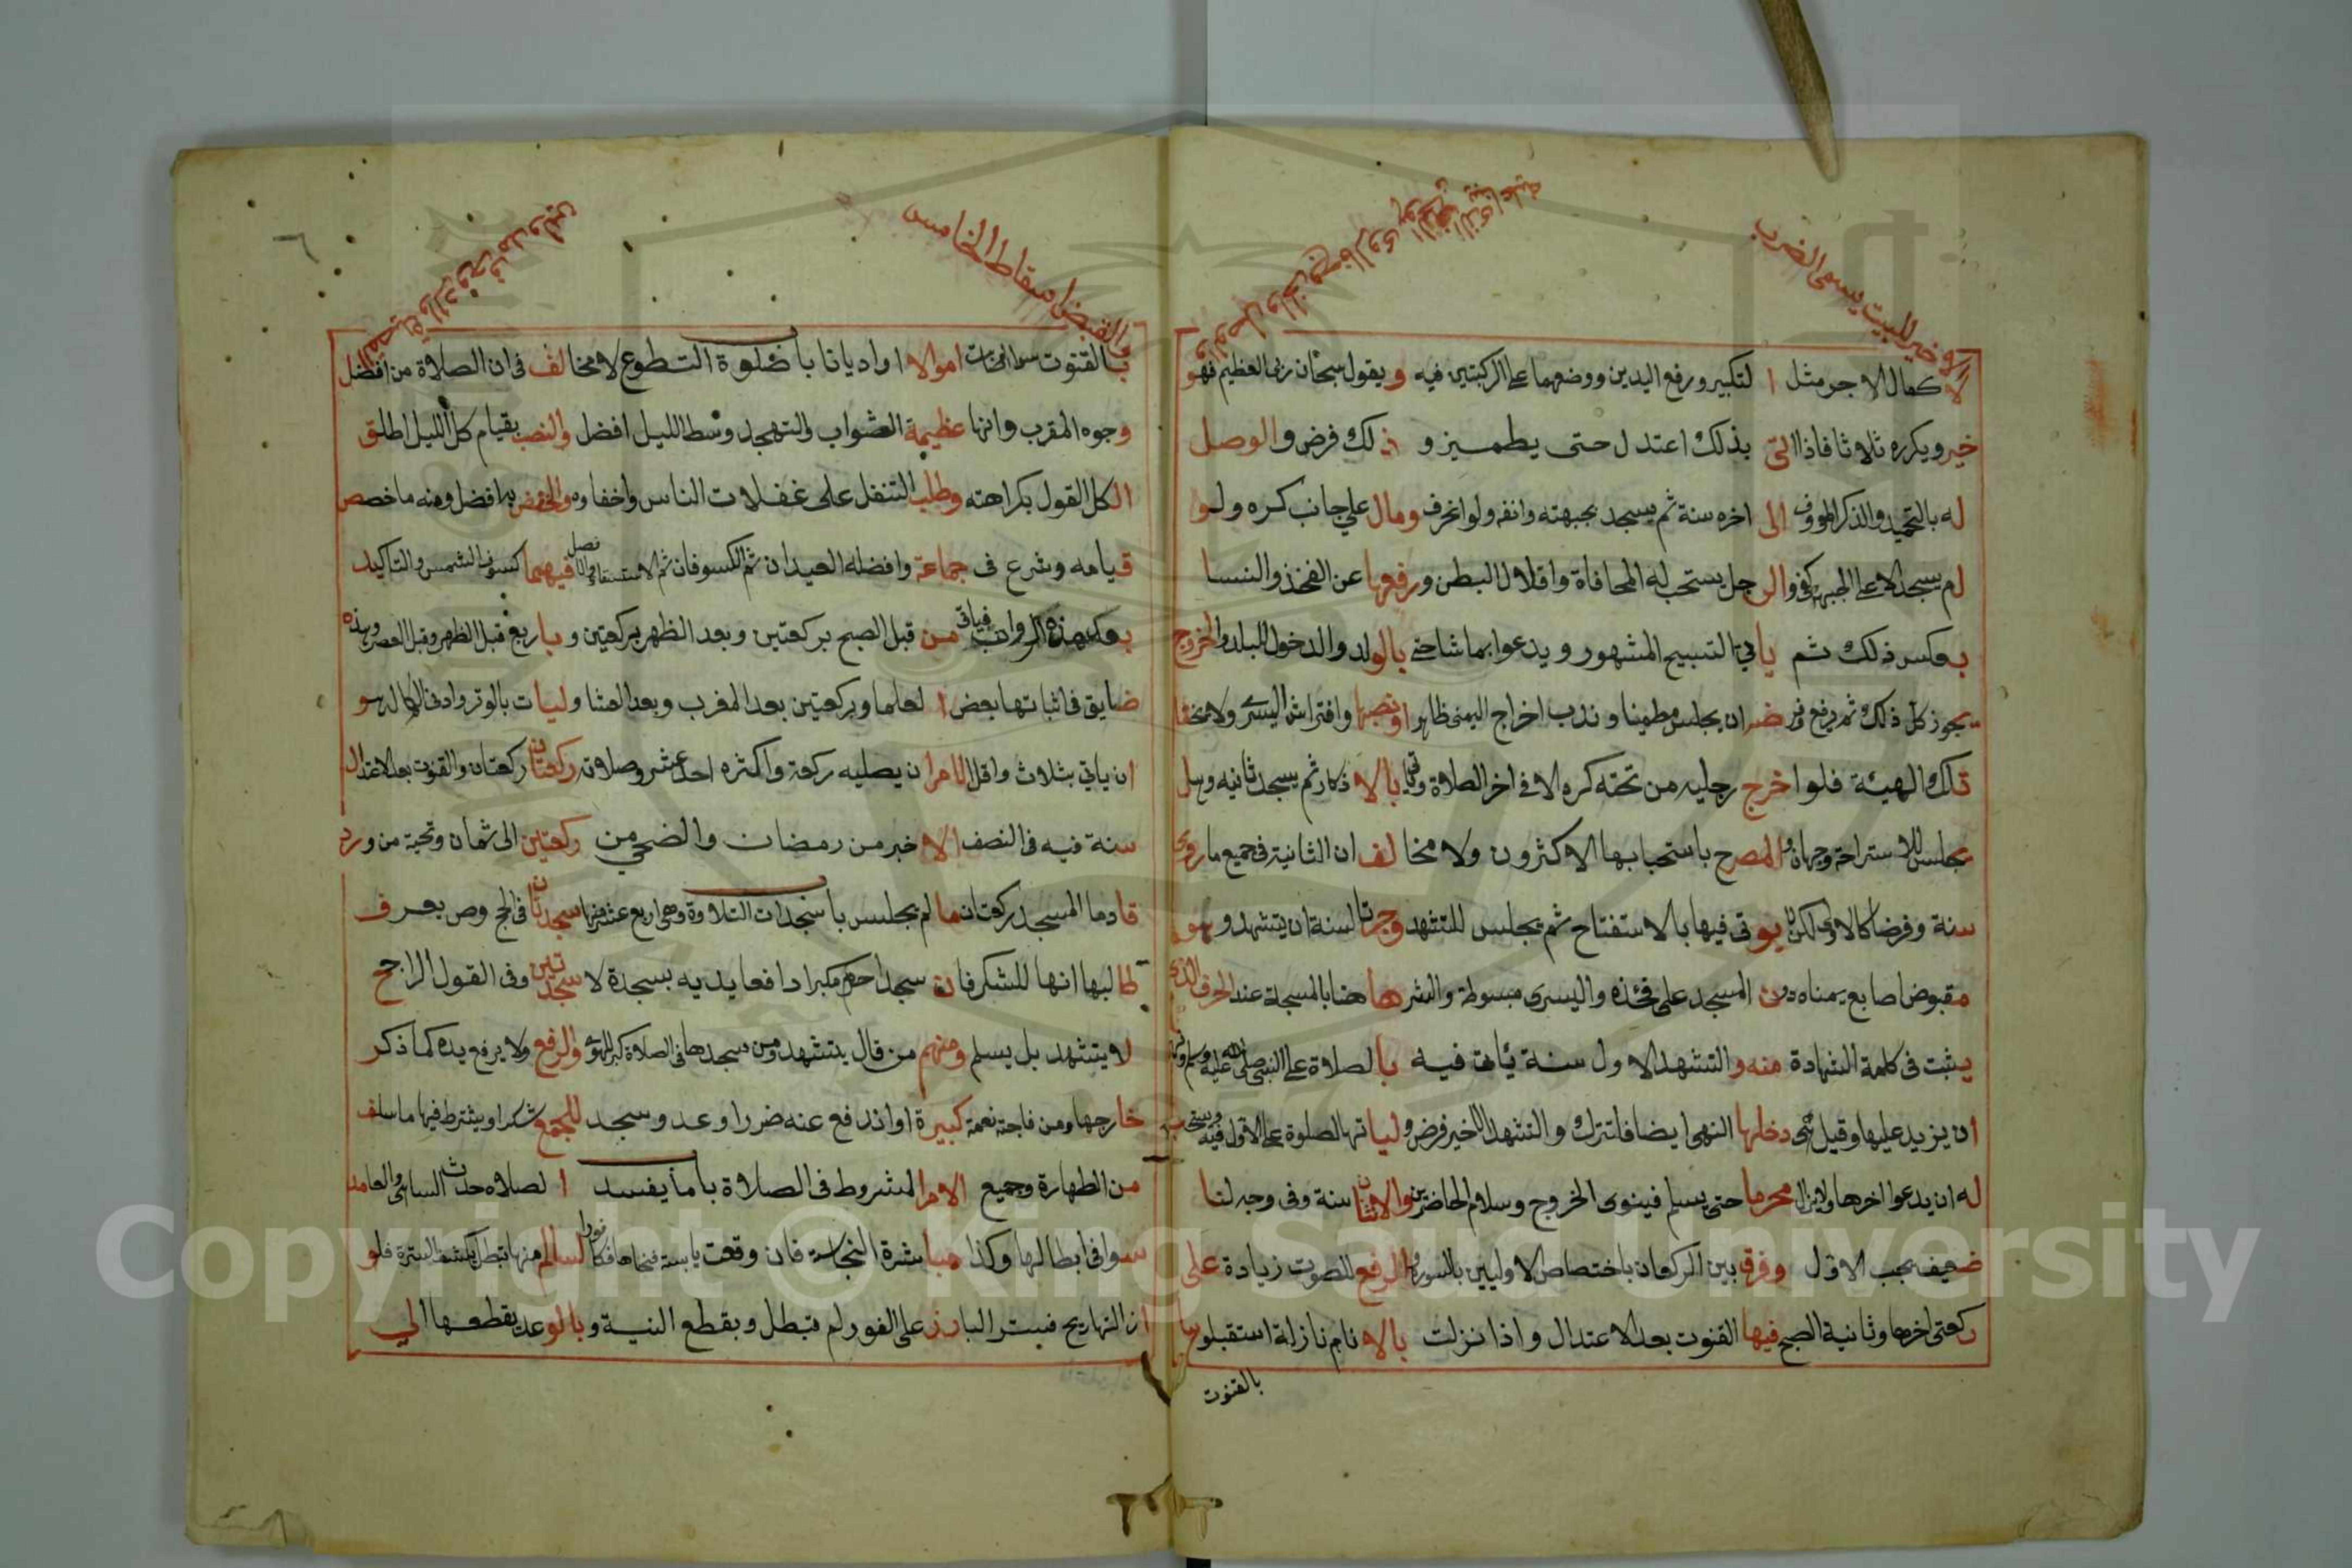 الاخير للبيت يسمى الضرب
لا كمال الاجر مثل التكبير ورفع اليدين ووضعهما على الركبتين فيه ويقول سبحان ربي العظيم فهو
خير ويكرره ثلاثا فاذا اتى بذلك اعتدل حتى يطمئن وذلك فرض والوصل
له بالتحميد والذكر المعروف الى اخره سنة ثم يسجد بجبهته وانفه ولو انحرف ومال على جانب كره ولو
لم يسجد الا على الجبهة كفى والرجل يستحب له المجافاة واقلال البطن ورفعها عن الفخذ والنسا
بعكس ذلك ثم ياتي التسبيح المشهور ويدعوا بما شا حتى بالولد والدخول للبلد والخروج
يجوز كل ذلك ثم يرفع وفرض ان يجلس مطمينا وندب اخراج اليمنى ظاهرا ونصبها وافتراش اليسرى ولا مخفا
تلك الهيئة فلو اخرج رجليه من تحته كره الا في اخر الصلاة وياتي بالاذكار ثم يسجد ثانيه وهل
يجلس للاستراحة وجهان والمصرح باستحبابها الاكثرون ولا مخالف ان الثانية في جميع ما روي
سنة وفرضا كالاولى لكن لا يوتى فيها بالاستفتاح ثم يجلس للتشهد وجرت السنة ان يتشهد وهو
مقبوض اصابع يمناه دون المسجد على فخذه واليسرى مبسوطة والنشر هاهنا بالمسبحة عند الحرف الذي
يثبت في كلمة الشهادة منه والتشهد الاول سنة يأت فيه بالصلاة على النبي صلى الله عليه وسلم وكره
ان يزيد عليها وقيل شي دخلها النهي ايضا فلتترك والتشهد الاخير فرض وليا تها الصلوة على الاول فيه ويستحب
له ان يدعوا اخرها ولا يزال محرما حتى يسلم فينوى الخروج وسلام الحاضرين والاثنتان سنة وفي وجه لنا
ضعيف يجب الاول وفرق بين الركعات باختصاص الاوليين بالسورة والرفع للصوت زيادة على
ركعتي اخرها وثانية الصبح فيها القنوت بعد الاعتدال واذا نزلت بالانام نازلة استقبلوها
بالقنوت
القبض اسقاط الخامس
بالقنوت سوا اموالا او اديانا باب صلوة التطوع لا مخالف في ان الصلاة من افضل
وجوه المقرب وانها عظيمة الثواب والتهجد وسط الليل افضل والنصب بقيام كل الليل اطلق
الكل القول بكراهته وطلب التنفل على غفلات الناس واخفاوه والخفض به افضل ومنه ما خصص
قيامه وشرع في جماعة وافضله العيدان ثم الكسوفان ثم الاستسقا فيهما كسوف الشمس والتاكيد
بعد هذه الرواتب فياتي من قبل الصبح بركعتين وبعد الظهر بركعتين وباربع قبل الظهر وقبل العصر وهذه
ضايق في اثباتها بعض العلما وبركعتين بعد المغرب وبعد العشا وليات بالوتر وادنى الكمال له هو
ان ياتي بثلاث واقل الامر ان يصليه ركعة واكثره احد عشر وصلاته ركعتان ركعتان والقنوت بعد الاعتدال
سنة فيه في النصف الاخير من رمضان والضحى من ركعتين الى ثمان وتحية من ورد
قادما المسجد ركعتان ما لم يجلس باب سجدات التلاوة وهي اربع عشر منها سجدتان في الحج وص يعرف
طالبها انها للشكر فان سجد احرم مكبرا دافعا يديه بسجدة لا سجدتين وفي القول الراجح
لا يتشهد بل يسلم ومنهم من قال يتشهد ومن سجدها في الصلاة كبر للهوي والرفع ولا يرفع يده كما ذكر
خارجها ومن فاجته نعمة كبيرة او اندفع عنه ضرر او عد وسجد للجمع شكرا ويشترط فيها ما سلف
من الطهارة وجميع الامر المشروط في الصلاة باب ما يفسد الصلاه حدث الساهي والعامد
سوا في ابطالها وكذا مباشرة النجاسة فان وقعت يابسة فنحاها فكا لسالم منها تبطل بكشف السترة فلو
ازالتها ريح فستر البارز على الفور لم تبطل وبقطع النية وبالوعد بقطعها الى
Copyright © King Saud University